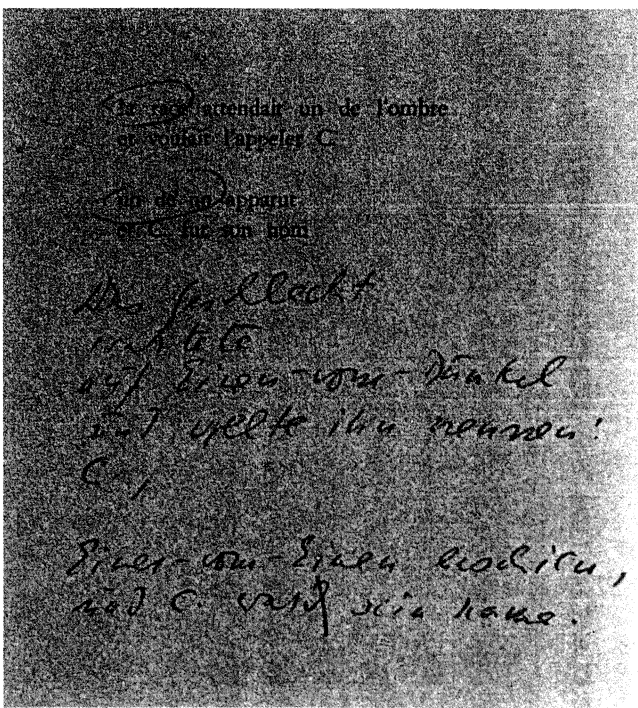 la race attendait un de l'ombre
et voulait l'appeler C.
un de un apparut
et C. fut son nom
Das Geschlecht
wartete
auf Einen-vom-Dunkel
und wollte ihn nennen:
C.,
Einer-vom-Einen erschien,
und C. ward sein name.